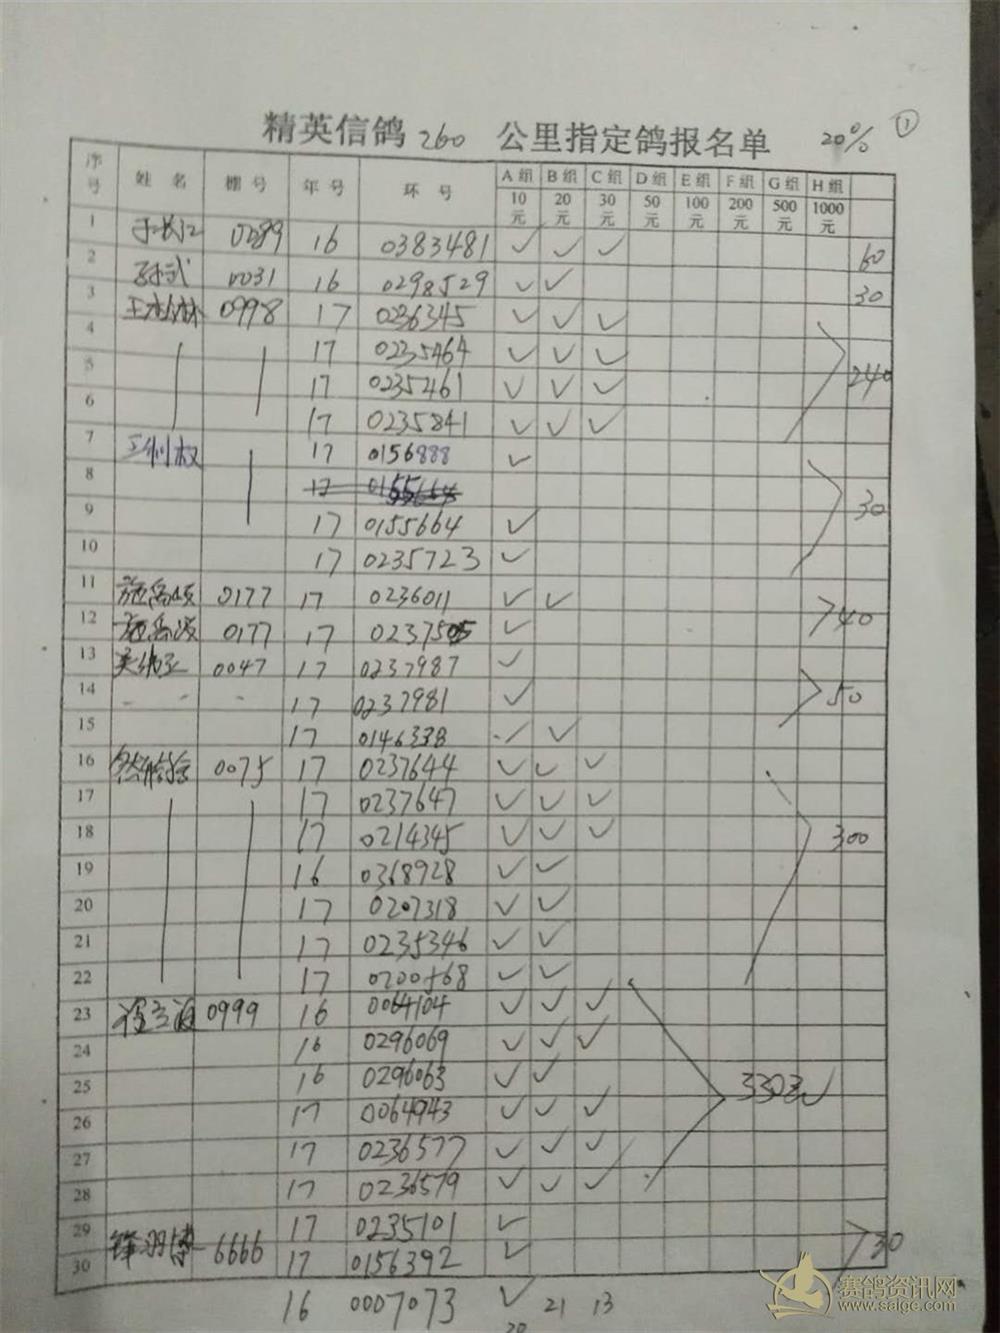 精英信鸽 260 公里指定鸽报名单 20% ①
序号 姓名 棚号 年号 环号 A组 B组 C组 D组 E组 F组 G组 H组
10元 20元 30元 50元 100元 200元 500元 1000元
1 于长江 0089 16 0383481 ✓ ✓ ✓ 60
2 孙武 0031 16 0298529 ✓ ✓ 30
3 0998 17 0236345 ✓ ✓ ✓
4 17 0235464 ✓ ✓ ✓
5 17 0235461 ✓ ✓ ✓ 240
6 17 0235841 ✓ ✓ ✓
7 17 0156888 ✓
8 17
9 17 0155664 ✓ 30
10 17 0235723 ✓
11 0177 17 0236011 ✓ ✓
12 0177 17 0237505 ✓ 40
13 0047 17 0237987 ✓
14 17 0237981 ✓ 50
15 17 0146338 ✓ ✓
16 0075 17 0237644 ✓ ✓ ✓
17 17 0237647 ✓ ✓ ✓
18 17 0214345 ✓ ✓ ✓ 300
19 16 0368928 ✓ ✓
20 17 0207318 ✓ ✓
21 17 0235346 ✓ ✓
22 17 0200568 ✓ ✓
23 0999 16 0064104 ✓ ✓ ✓
24 16 0296069 ✓ ✓ ✓
25 16 0296063 ✓ ✓ 330
26 17 0064943 ✓ ✓ ✓
27 17 0236577 ✓ ✓ ✓
28 17 0236579 ✓ ✓ ✓
29 17 0235101 ✓
30 6666 17 0156392 ✓ 30
16 0007073 ✓ 21 13
20
赛鸽资讯网
www.saige.com